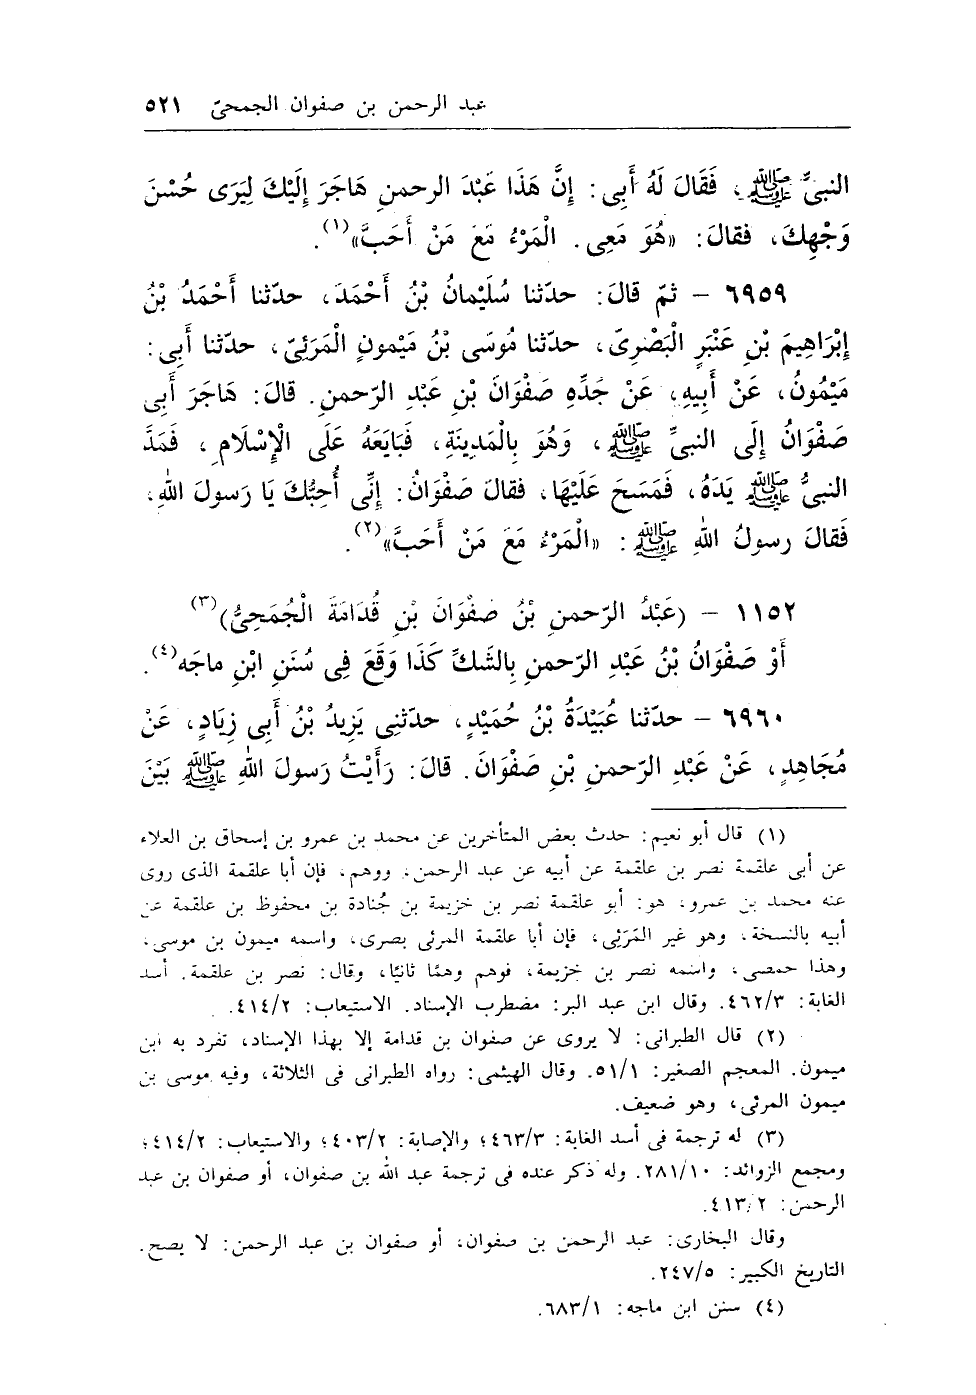 عبد الرحمن بن صفوان الجمحىّ ٥٢١
النبىَّ ﷺ، فَقَالَ لَهُ أَبِى: إِنَّ هَذَا عَبْدَ الرحمنِ هَاجَرَ إِلَيْكَ لِيَرَى حُسْنَ
وَجْهِكَ، فقالَ: «هُوَ مَعِى. الْمَرْءُ مَعَ مَنْ أَحَبَّ»(١).
٦٩٥٩ – ثمّ قالَ: حدّثنا سُلَيْمانُ بْنُ أَحْمَدَ، حدّثنا أَحْمَدُ بْنُ
إِبْرَاهِيمَ بْنِ عَنْبَرٍ الْبَصْرِىَّ، حدّثنا مُوسَى بْنُ مَيْمونٍ الْمَرَئِىّ، حدّثنا أَبِى:
مَيْمُونُ، عَنْ أَبِيهِ، عَنْ جَدِّهِ صَفْوَانَ بْنِ عَبْدِ الرّحمنِ. قالَ: هَاجَرَ أَبِى
صَفْوَانُ إِلَى النبىِّ ﷺ، وَهُوَ بِالْمَدِينَةِ، فَبَايَعَهُ عَلَى الْإِسْلَامِ، فَمَدَّ
النبىُّ ﷺ يَدَهُ، فَمَسَحَ عَلَيْهَا، فقالَ صَفْوَانُ: إِنِّى أُحِبُّكَ يَا رَسولَ اللهِ،
فَقالَ رسولُ اللهِ ﷺ: «الْمَرْءُ مَعَ مَنْ أَحَبَّ»(٢).
١١٥٢ – (عَبْدُ الرّحمنِ بْنُ صَفْوَانَ بْنِ قُدَامَةَ الْجُمَحِىُّ)(٣)
أَوْ صَفْوَانُ بْنُ عَبْدِ الرّحمنِ بِالشَكِّ كَذَا وَقَعَ فِى سُنَنِ ابْنِ ماجَه(٤).
٦٩٦٠ – حدّثنا عُبَيْدَةُ بْنُ حُمَيْدٍ، حدّثنِى يَزِيدُ بْنُ أَبِى زِيَادٍ، عَنْ
مُجَاهِدٍ، عَنْ عَبْدِ الرّحمنِ بْنِ صَفْوَانَ. قالَ: رَأَيْتُ رَسولَ اللهِ ﷺ بَيْنَ
(١) قال أبو نعيم: حدث بعض المتأخرين عن محمد بن عمرو بن إسحاق بن العلاء
عن أبى علقمة نصر بن علقمة عن أبيه عن عبد الرحمن، ووهم، فإن أبا علقمة الذى روى
عنه محمد بن عمرو، هو: أبو علقمة نصر بن خزيمة بن جُنادة بن محفوظ بن علقمة عن
أبيه بالنسخة، وهو غير المَرَئِى، فإن أبا علقمة المرئى بصرى، واسمه ميمون بن موسى،
وهذا حمصى، واسمه نصر بن خزيمة، فوهم وهمًا ثانيًا، وقال: نصر بن علقمة. أسد
الغابة: ٤٦٢/٣. وقال ابن عبد البر: مضطرب الإسناد. الاستيعاب: ٤١٤/٢.
(٢) قال الطبرانى: لا يروى عن صفوان بن قدامة إلا بهذا الإسناد، تفرد به ابن
ميمون. المعجم الصغير: ٥١/١. وقال الهيثمى: رواه الطبرانى فى الثلاثة، وفيه موسى بن
ميمون المرئى، وهو ضعيف.
(٣) له ترجمة فى أسد الغابة: ٤٦٣/٣؛ والإصابة: ٤٠٣/٢؛ والاستيعاب: ٤١٤/٢؛
ومجمع الزوائد: ٢٨١/١٠. وله ذكر عنده فى ترجمة عبد الله بن صفوان، أو صفوان بن عبد
الرحمن: ٤١٣/٢.
وقال البخارى: عبد الرحمن بن صفوان، أو صفوان بن عبد الرحمن: لا يصح.
التاريخ الكبير: ٢٤٧/٥.
(٤) سنن ابن ماجه: ٦٨٣/١.